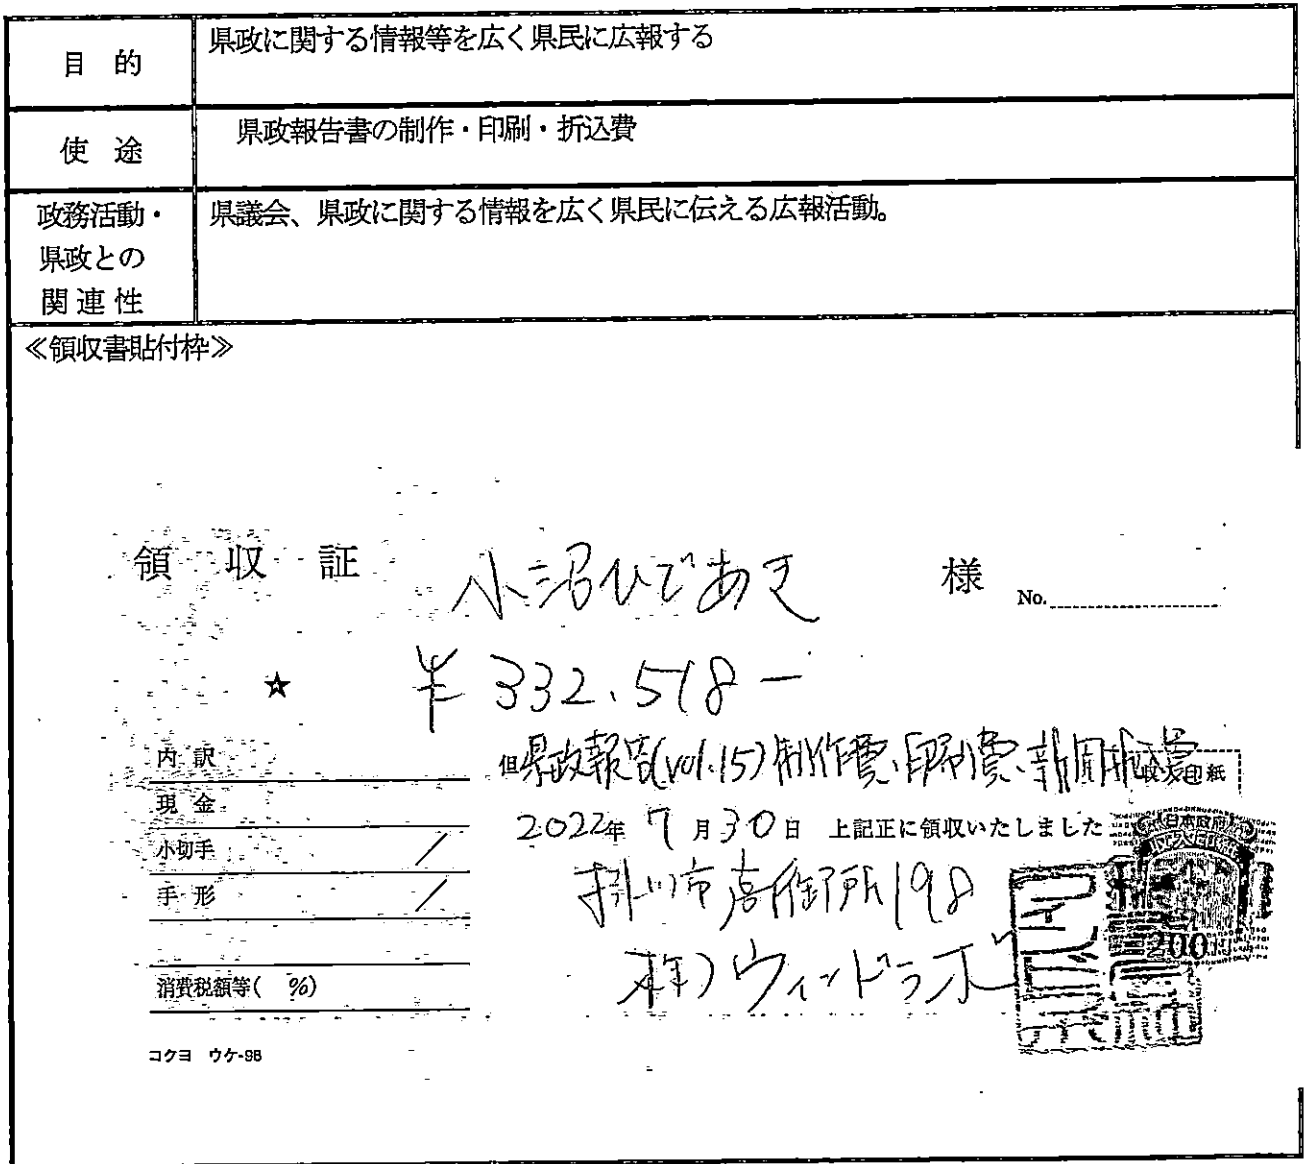 目 的
県政に関する情報等を広く県民に広報する
使 途
県政報告書の制作・印刷・折込費
政務活動・
県政との
関連性
県議会、県政に関する情報を広く県民に伝える広報活動。
≪領収書貼付枠≫
領 収 証 小沼ひであき 様 No.
★ ¥332,518-
内 訳
現 金
小切手
手 形
消費税額等( %)
但 県政報告(vol.15)制作費、印刷費、新聞折込費
収入印紙
2022年 7月30日 上記正に領収いたしました
掛川市高御所198
(株)ウィンドラボ
日本政府
200円
コクヨ ウケ-98